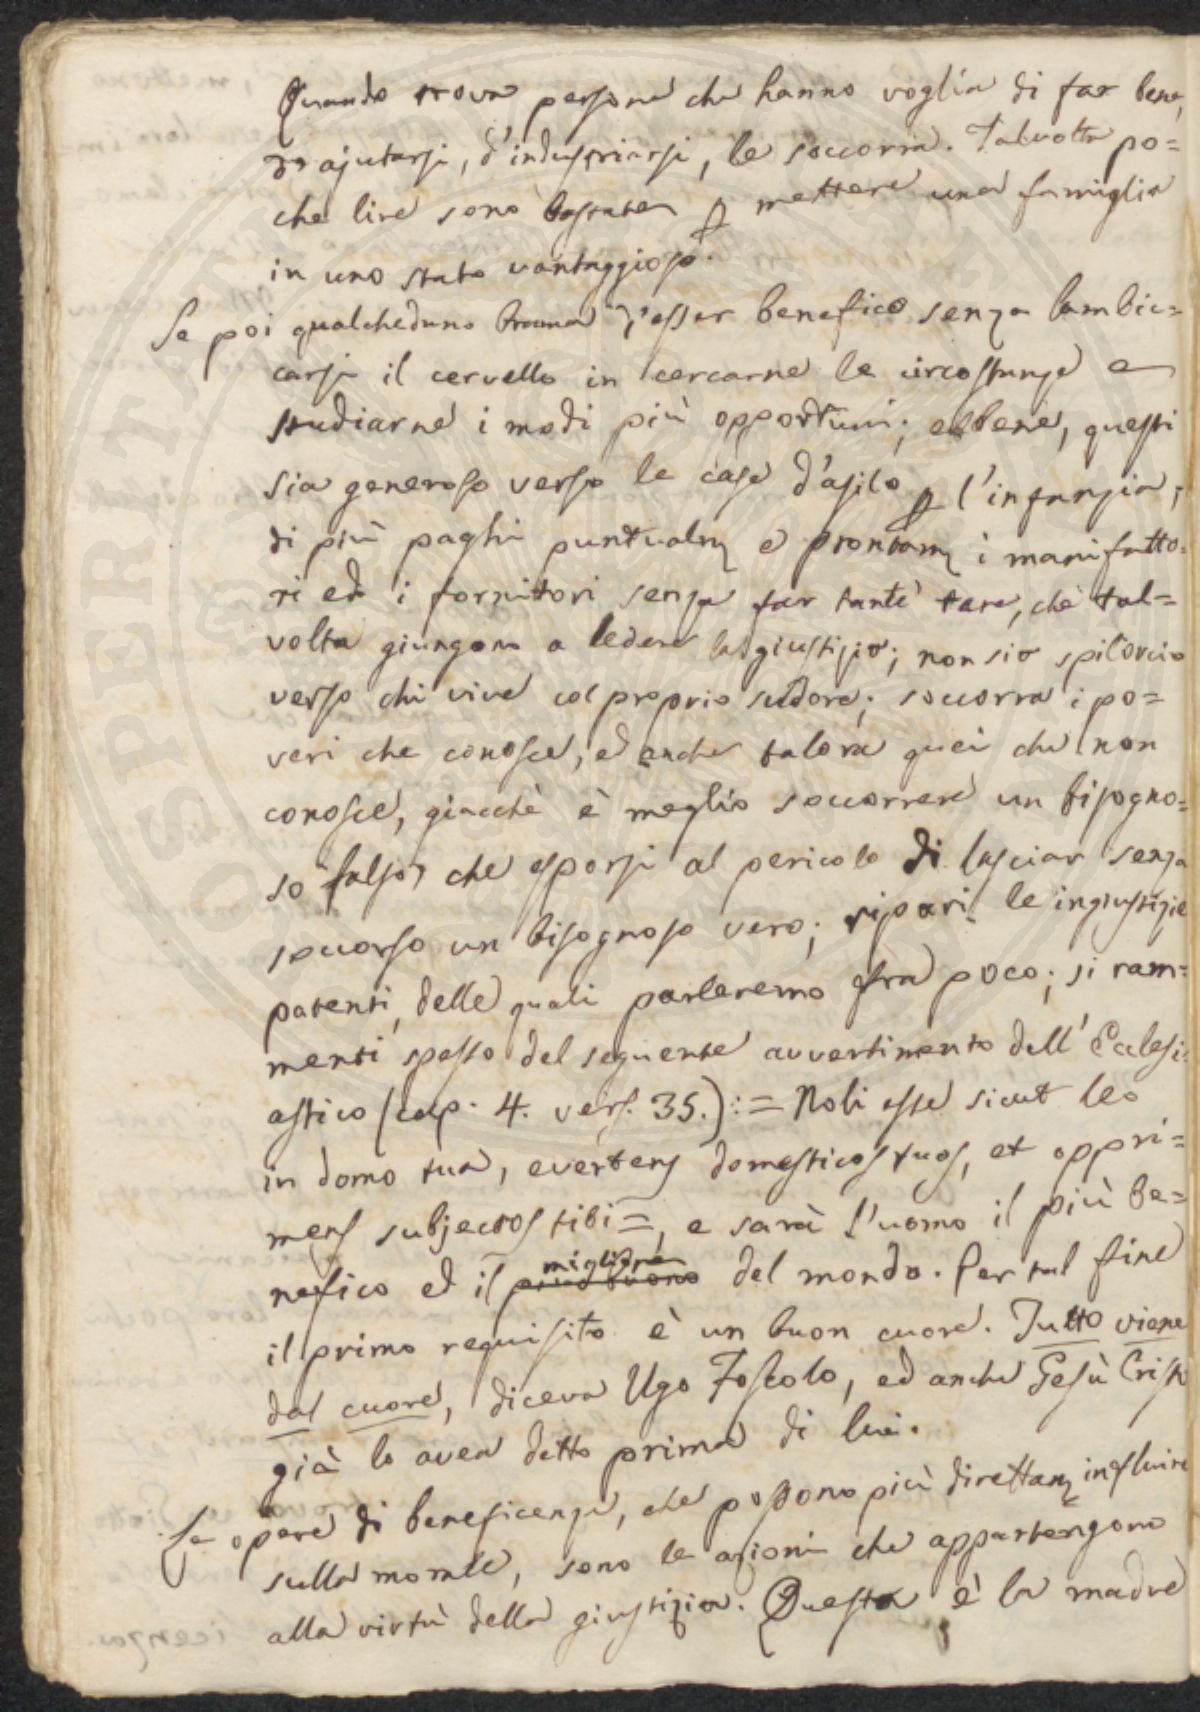 Quando trova persone che hanno voglia di far bene,
d'ajutarsi, d'industriarsi, le soccorra. Talvolta po=
che lire sono bastate p mettere una famiglia
in uno stato vantaggioso.
Se poi qualcheduno brama d'esser benefico senza lambic=
carsi il cervello in cercarne le circostanze e
studiarne i modi più opportuni; ebbene, questi
sia generoso verso le case d'asilo p l'infanzia;
di più paghi puntualm e prontam i manifatto=
ri ed i fornitori senza far tante tare, che tal=
volta giungono a ledere la giustizia; non sia spilorcio
verso chi vive col proprio sudore; soccorra i po=
veri che conosce, ed anche talora quei che non
conosce, giacchè è meglio soccorrere un bisogno=
so falso, che esporsi al pericolo di lasciar senza
soccorso un bisognoso vero; ripari le ingiustizie
patenti, delle quali parleremo fra poco; si ram=
menti spesso del seguente avvertimento dell'Eclesi=
astico (cap. 4. vers. 35.): = Noli esse sicut leo
in domo tua, evertens domesticos tuos, et oppri=
mens subjectos tibi =, e sarà l'uomo il più be=
nefico ed il più buono migliore del mondo. Per tal fine
il primo requisito è un buon cuore. Tutto viene
dal cuore, diceva Ugo Foscolo, ed anche Gesù Cristo
già lo avea detto prima di lui.
Le opere di beneficenza, che possono più direttam influire
sulla morale, sono le azioni che appartengono
alla virtù della giustizia. Questa è la madre
SOSPERITATI